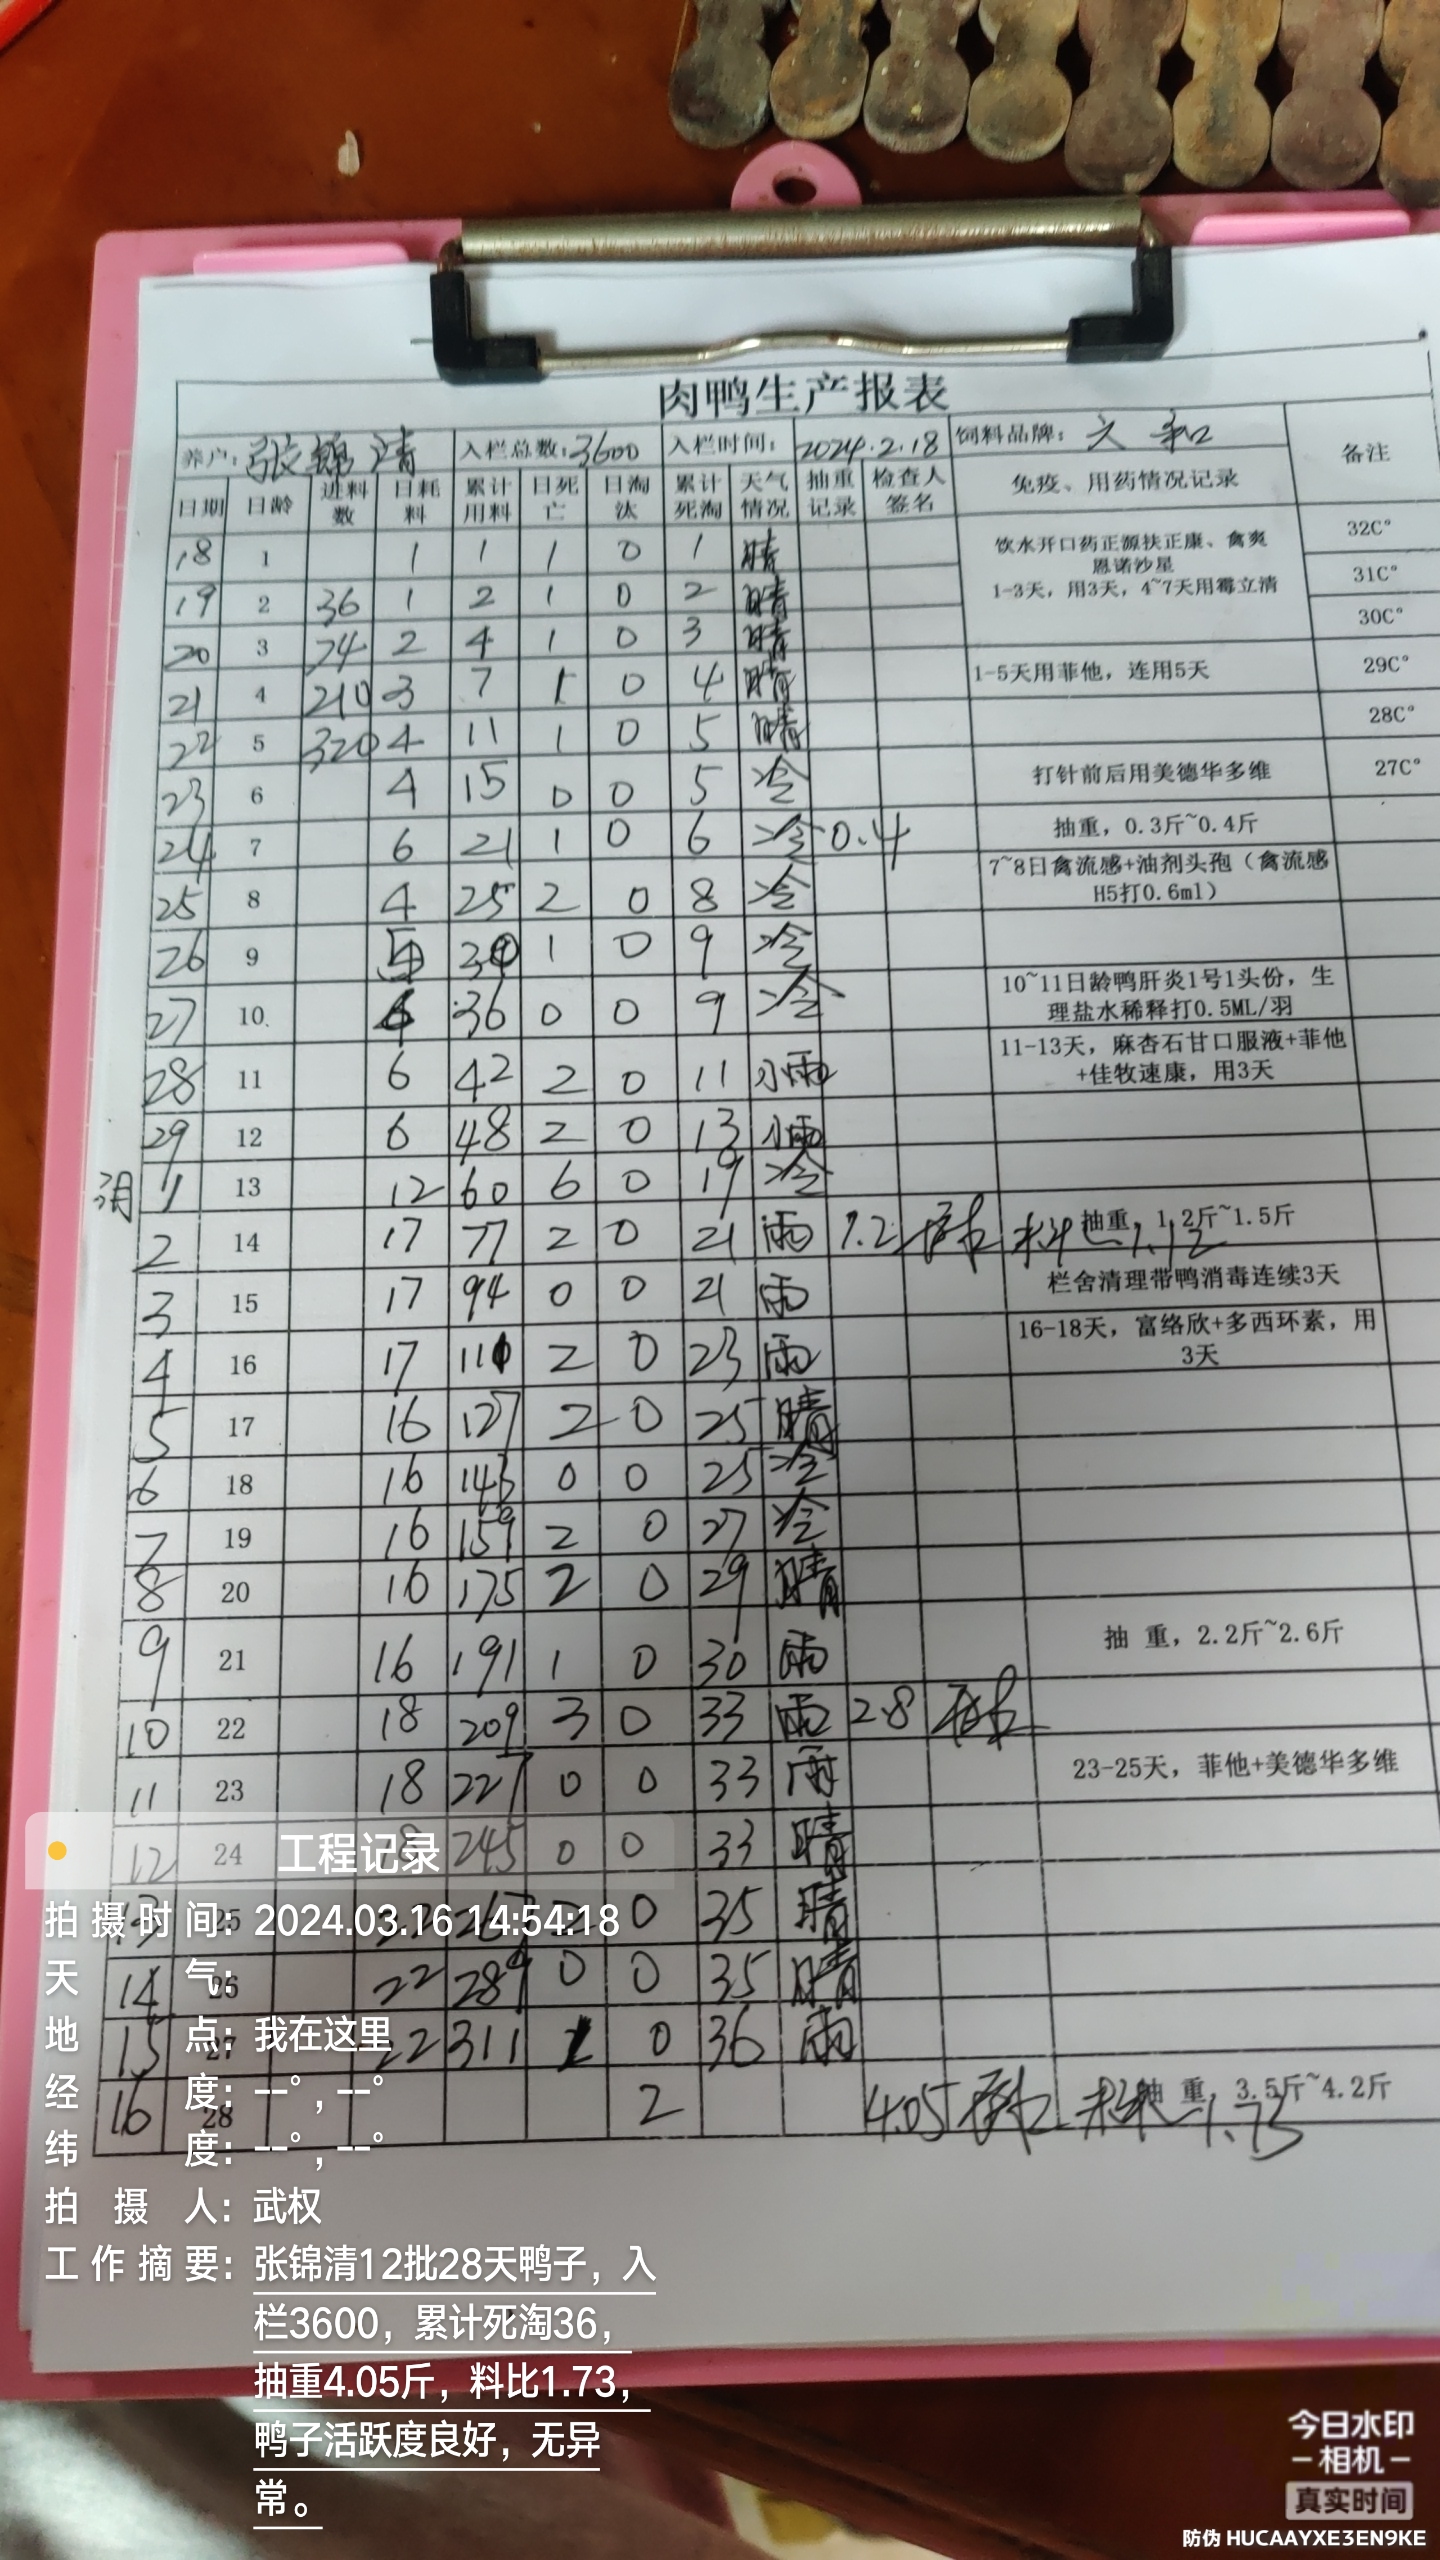 肉鸭生产报表
养户：张锦清 入栏总数：3600 入栏时间： 2024.2.18 饲料品牌：六和 备注
日期 日龄 进料数 日耗料 累计用料 日死亡 日淘汰 累计死淘 天气情况 抽重记录 检查人签名 免疫、用药情况记录
18 1 1 1 1 0 1 晴 饮水开口药正源扶正康、禽爽 32C°
恩诺沙星
19 2 36 1 2 1 0 2 晴 1-3天，用3天，4~7天用霉立清 31C°
20 3 74 2 4 1 0 3 晴 30C°
21 4 210 3 7 1 0 4 晴 1-5天用菲他，连用5天 29C°
22 5 320 4 11 1 0 5 晴 28C°
23 6 4 15 0 0 5 冷 打针前后用美德华多维 27C°
24 7 6 21 1 0 6 冷 0.4 抽重，0.3斤~0.4斤
25 8 4 25 2 0 8 冷 7~8日禽流感+油剂头孢（禽流感
H5打0.6ml）
26 9 5 30 1 0 9 冷
27 10 6 36 0 0 9 冷 10~11日龄鸭肝炎1号1头份，生
理盐水稀释打0.5ML/羽
28 11 6 42 2 0 11 小雨 11-13天，麻杏石甘口服液+菲他
+佳牧速康，用3天
29 12 6 48 2 0 13 小雨
3月 1 13 12 60 6 0 19 冷
2 14 17 77 2 0 21 雨 1.2 料比1.12 抽重，1.2斤~1.5斤
3 15 17 94 0 0 21 雨 栏舍清理带鸭消毒连续3天
4 16 17 111 2 0 23 雨 16-18天，富络欣+多西环素，用
3天
5 17 16 127 2 0 25 晴
6 18 16 143 0 0 25 冷
7 19 16 159 2 0 27 冷
8 20 16 175 2 0 29 晴
9 21 16 191 1 0 30 雨 抽 重，2.2斤~2.6斤
10 22 18 209 3 0 33 雨 2.8
11 23 18 227 0 0 33 雨 23-25天，菲他+美德华多维
12 24 18 245 0 0 33 晴
13 25 22 267 2 0 35 晴
14 26 22 289 0 0 35 晴
15 27 22 311 1 0 36 雨
16 28 2 4.05 料比1.73 抽 重，3.5斤~4.2斤
工程记录
拍摄时间：2024.03.16 14:54:18
天气：
地点：我在这里
经度：--°，--°
纬度：--°，--°
拍摄人：武权
工作摘要：张锦清12批28天鸭子，入
栏3600，累计死淘36，
抽重4.05斤，料比1.73，
鸭子活跃度良好，无异
常。
今日水印
相机
真实时间
防伪 HUCAAYXE3EN9KE